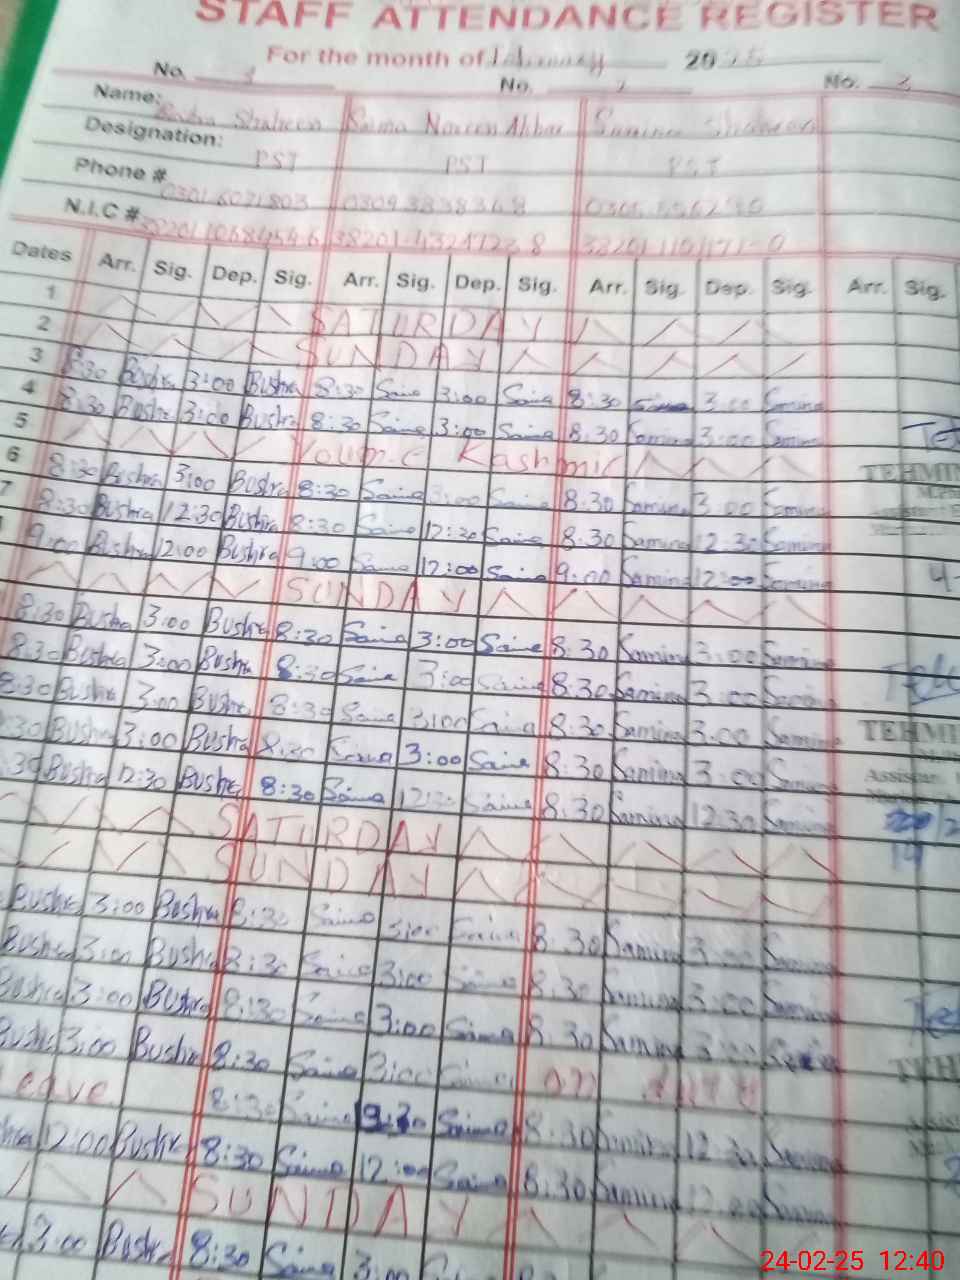 STAFF ATTENDANCE REGISTER
For the month of February 2025
No. 1 No. 2 No. 3
Name: Bushra Shaheen Saima Noreen Akhtar Samina
Designation: PST PST PST
Phone # 0301 6071803 0304 3838348
N.I.C #
Dates Arr. Sig. Dep. Sig. Arr. Sig. Dep. Sig. Arr. Sig. Dep. Sig. Arr. Sig.
1 SATURDAY
2 SUNDAY
3 8:30 Bushra 3:00 Bushra 8:30 Saima 3:00 Saima 8:30 Samina 3:00 Samina
4 8:30 Bushra 3:00 Bushra 8:30 Saima 3:00 Saima 8:30 Samina 3:00 Samina
5 Kashmir
6 8:30 Bushra 3:00 Bushra 8:30 Saima 3:00 Saima 8:30 Samina 3:00 Samina
TEHMI
7 8:30 Bushra 12:30 Bushra 8:30 Saima 12:30 Saima 8:30 Samina 12:30 Samina
9:00 Bushra 12:00 Bushra 9:00 Saima 12:00 Saima 9:00 Samina 12:00 Samina
SUNDAY
8:30 Bushra 3:00 Bushra 8:30 Saima 3:00 Saima 8:30 Samina 3:00 Samina
8:30 Bushra 3:00 Bushra 8:30 Saima 3:00 Saima 8:30 Samina 3:00 Samina
8:30 Bushra 3:00 Bushra 8:30 Saima 3:00 Saima 8:30 Samina 3:00 Samina
TEHMI
:30 Bushra 3:00 Bushra 8:30 Saima 3:00 Saima 8:30 Samina 3:00 Samina
:30 Bushra 12:30 Bushra 8:30 Saima 12:30 Saima 8:30 Samina 12:30 Samina
SATURDAY
SUNDAY
Bushra 3:00 Bushra 8:30 Saima 3:00 Saima 8:30 Samina 3:00 Samina
Bushra 3:00 Bushra 8:30 Saima 3:00 Saima 8:30 Samina 3:00 Samina
Bushra 3:00 Bushra 8:30 Saima 3:00 Saima 8:30 Samina 3:00 Samina
Bushra 3:00 Bushra 8:30 Saima 3:00 Saima on duty
eave 8:30 Saima Saima 8:30 Samina 12:30 Samina
12:00 Bushra 8:30 Saima 12:00 Saima 8:30 Samina 12:00 Samina
SUNDAY
3:00 Bushra 8:30 Saima 3:00
24-02-25 12:40